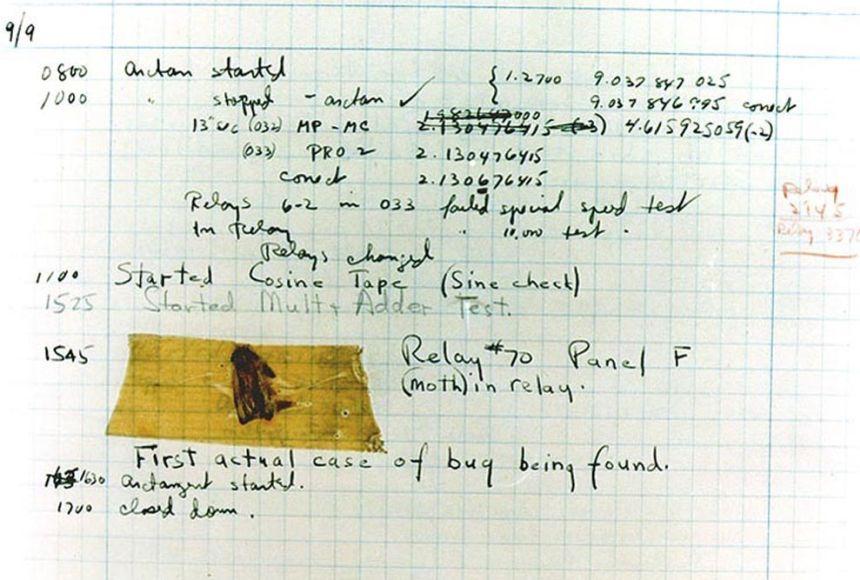 9/9
0800 arctan started { 1.2700 9.037 847 025
1000 " stopped - arctan ✓ { 9.037 846 995 correct
13"uc (032) MP - MC 2.130476415 (-3) 4.615925059(-2)
(033) PRO 2 2.130476415
correct 2.130676415
Relays 6-2 in 033 failed special speed test
In relay " 10,000 test .
Relays changed
Relay
2145
Relay 3370
1100 Started Cosine Tape (Sine check)
1525 Started Mult + Adder Test.
1545 Relay #70 Panel F
(moth) in relay.
First actual case of bug being found.
1630 arctangent started.
1700 closed down .